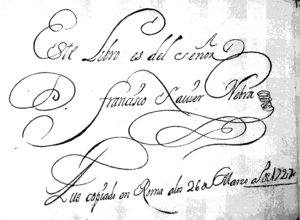 Este Libro es del señor
D. Francisco Xavier Nebra
Fue copiado en Roma a los 26 de Marzo a